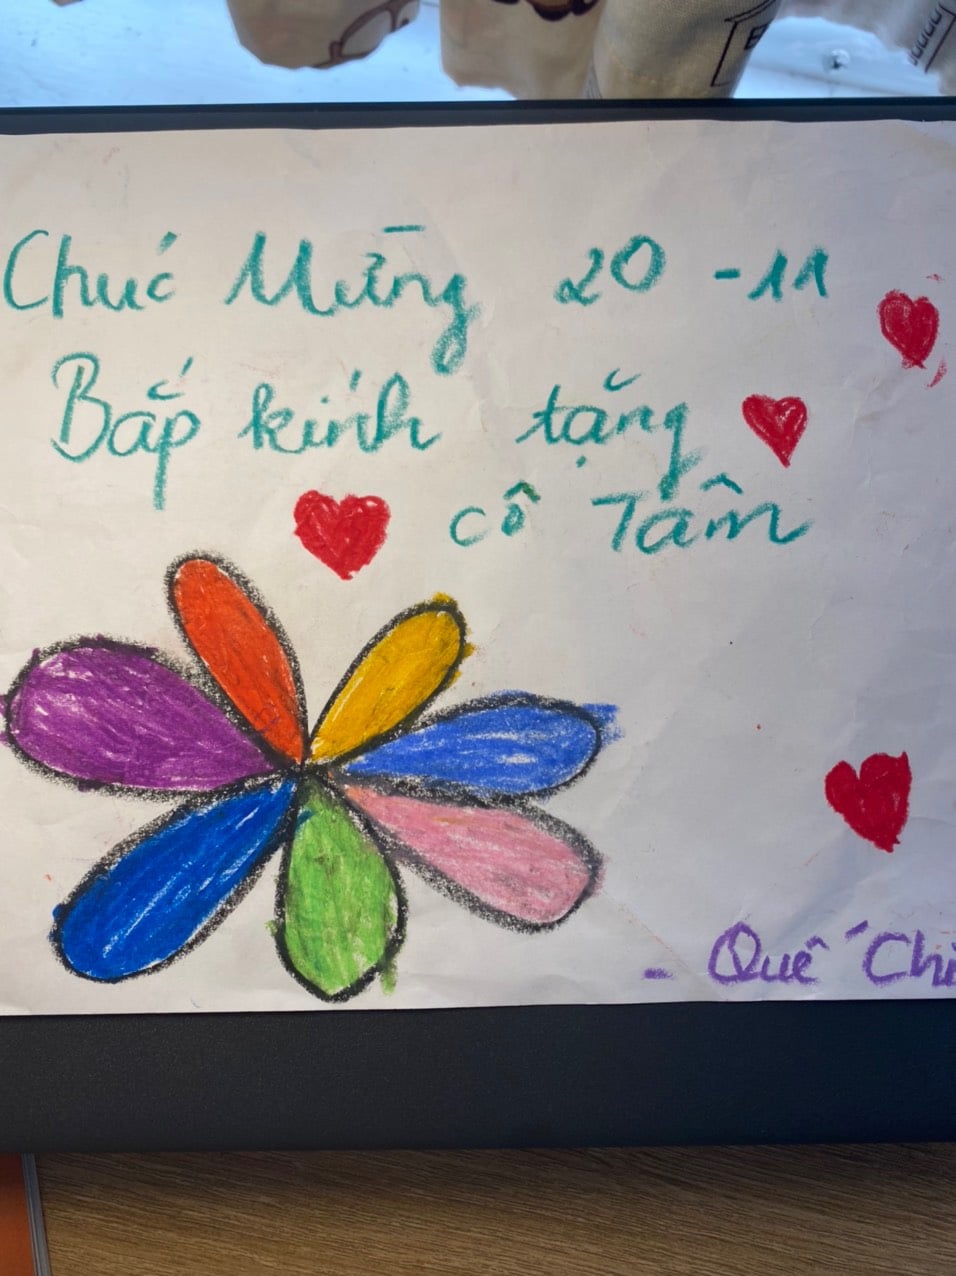 Chúc Mừng 20 - 11
Bắp kính tặng
cô Tâm
- Quế Chi